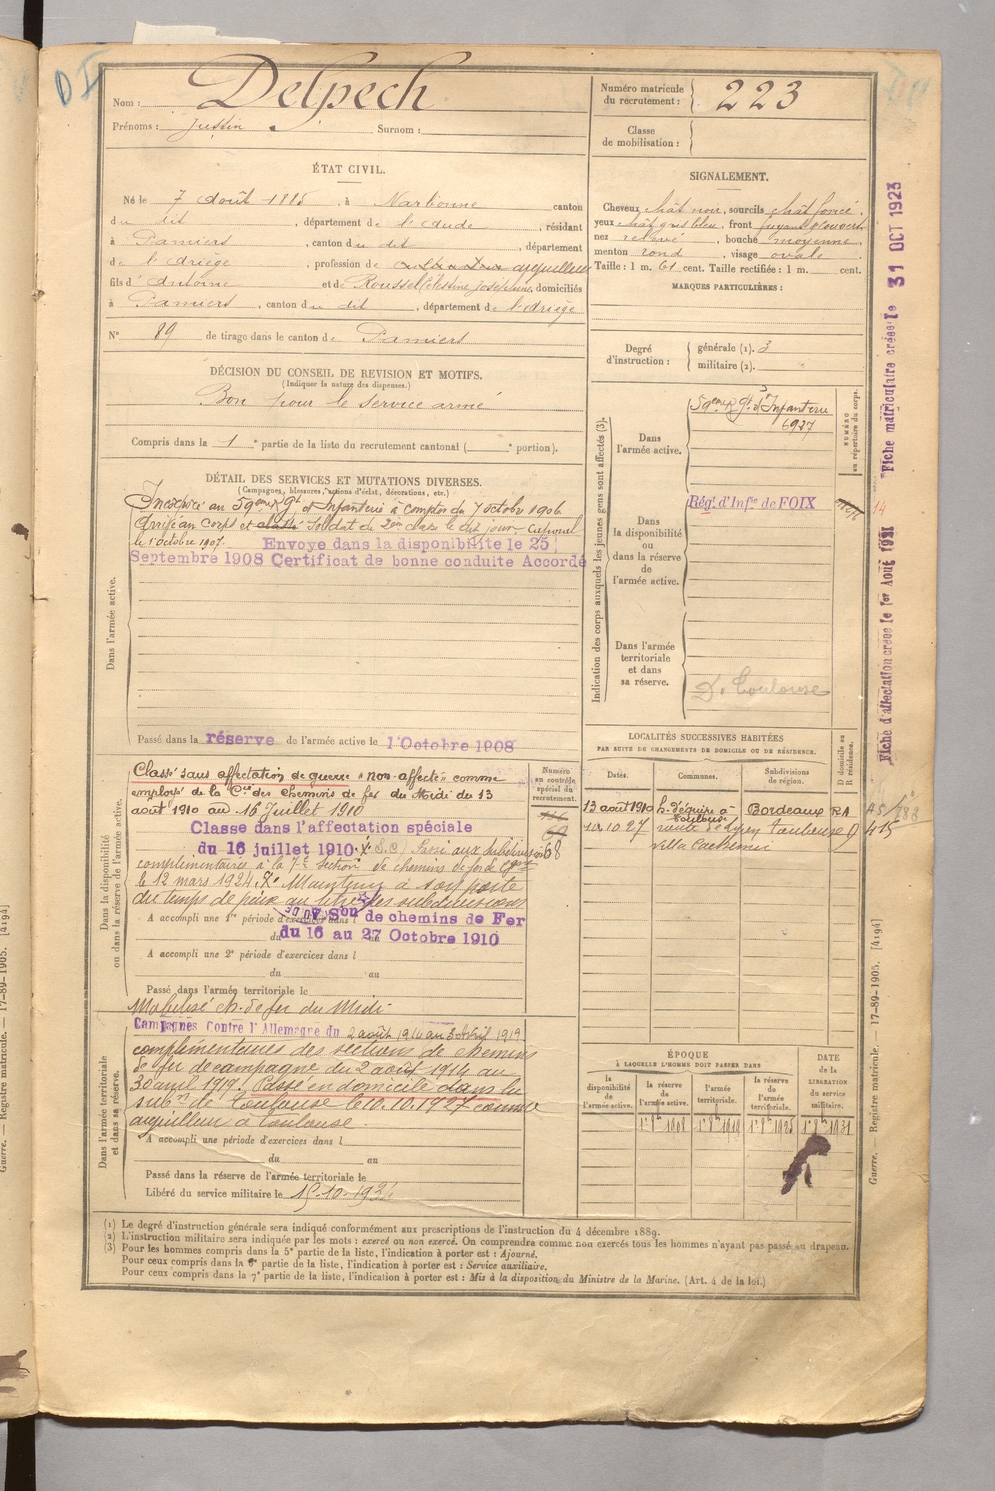 Nom : Delpech
Prénoms : Justin Surnom :
Numéro matricule
du recrutement : 223
Classe
de mobilisation :
ÉTAT CIVIL.
Né le 7 août 1885, à Narbonne canton
du dit, département de l'Aude, résidant
à Pamiers, canton du dit, département
de l'Ariège, profession de aiguilleur
fils d'Antoine et de Roussel Célestine Joséphine, domiciliés
à Pamiers, canton du dit, département de l'Ariège
N° 89 de tirage dans le canton de Pamiers
SIGNALEMENT.
Cheveux chât noir, sourcils chât foncé,
yeux chât gris bleu, front fuyant
nez relevé, bouche moyenne,
menton rond, visage ovale
Taille : 1 m. 61 cent. Taille rectifiée : 1 m. cent.
MARQUES PARTICULIÈRES :
Degré
d'instruction :
générale (1). 3
militaire (2).
DÉCISION DU CONSEIL DE REVISION ET MOTIFS.
(Indiquer la nature des dispenses.)
Bon pour le service armé
Compris dans la 1e partie de la liste du recrutement cantonal ( e portion).
DÉTAIL DES SERVICES ET MUTATIONS DIVERSES.
(Campagnes, blessures, actions d'éclat, décorations, etc.)
Dans l'armée active.
Incorporé au 59eme Rgt d'Infanterie à compter du 7 octobre 1906
Arrivé au corps et soldat de 2eme classe le dit jour Caporal
le 1 octobre 1907. Envoye dans la disponibilite le 25
Septembre 1908 Certificat de bonne conduite Accordé
Passé dans la réserve de l'armée active le 1 Octobre 1908
Indication des corps auxquels les jeunes gens sont affectés (3).
NUMÉRO
au répertoire du corps.
Dans
l'armée active.
59eme Rgt d'Infanterie
6927
Dans
la disponibilité
ou
dans la réserve
de
l'armée active.
Régt d'Infie de FOIX
14
Dans l'armée
territoriale
et dans
sa réserve.
D. Toulouse
Dans la disponibilité
ou dans la réserve de l'armée active.
Numéro
au contrôle
spécial du
recrutement.
68
Classé sans affectation de guerre "non affecté" comme
employé de la Cie des chemins de fer du Midi du 13
août 1910 au 16 Juillet 1910
Classe dans l'affectation spéciale
du 16 juillet 1910. X (S.C) Passé aux subdivisions
complémentaires à la 7e section de chemins de fer de Cgne
le 12 mars 1924. X Maintenu à son poste
du temps de paix au titre des subdivisions
A accompli une 1re période d'exercices dans l 7e Son de chemins de Fer
du 16 au 27 Octobre 1910
A accompli une 2e période d'exercices dans l
du au
Passé dans l'armée territoriale le
Mobilisé ch. de fer du Midi
Dans l'armée territoriale
et dans sa réserve.
Campagnes Contre l'Allemagne du 2 août 1914 au 3 Avril 1919
complémentaires des sections de chemins
de fer de campagne du 2 août 1914 au
30 avril 1919. Passé en domicile dans la
subon de Toulouse le 10.10.1927 comme
aiguilleur à Toulouse
A accompli une période d'exercices dans l
du au
Passé dans la réserve de l'armée territoriale le
Libéré du service militaire le 15-10-1934
LOCALITÉS SUCCESSIVES HABITÉES
PAR SUITE DE CHANGEMENTS DE DOMICILE OU DE RÉSIDENCE.
D domicile ou
R résidence.
Datés. Communes. Subdivisions
de région.
13 août 1910 h. d'équipe à Toulouse Bordeaux RA
10.10.27 route d'Espagne Toulouse D 415
ÉPOQUE
À LAQUELLE L'HOMME DOIT PASSER DANS
la
disponibilité
de
l'armée active.
la réserve
de
l'armée active.
l'armée
territoriale.
la réserve
de
l'armée
territoriale.
DATE
de la
LIBÉRATION
du service
militaire.
1er 8bre 1908 1er 8bre 1919 1er 8bre 1925 1er 8bre 1931
(1) Le degré d'instruction générale sera indiqué conformément aux prescriptions de l'instruction du 4 décembre 1889.
(2) L'instruction militaire sera indiquée par les mots : exercé ou non exercé. On comprendra comme non exercés tous les hommes n'ayant pas passé au drapeau.
(3) Pour les hommes compris dans la 5e partie de la liste, l'indication à porter est : Ajourné.
Pour ceux compris dans la 6e partie de la liste, l'indication à porter est : Service auxiliaire.
Pour ceux compris dans la 7e partie de la liste, l'indication à porter est : Mis à la disposition du Ministre de la Marine. (Art. 4 de la loi.)
Fiche matriculaire créée le 31 OCT 1923
Fiche d'affectation créée le 1er Aout 1921
Guerre. — Registre matricule. — 17-89-1905. [4194]
Guerre. — Registre matricule. — 17-89-1905. [4194]